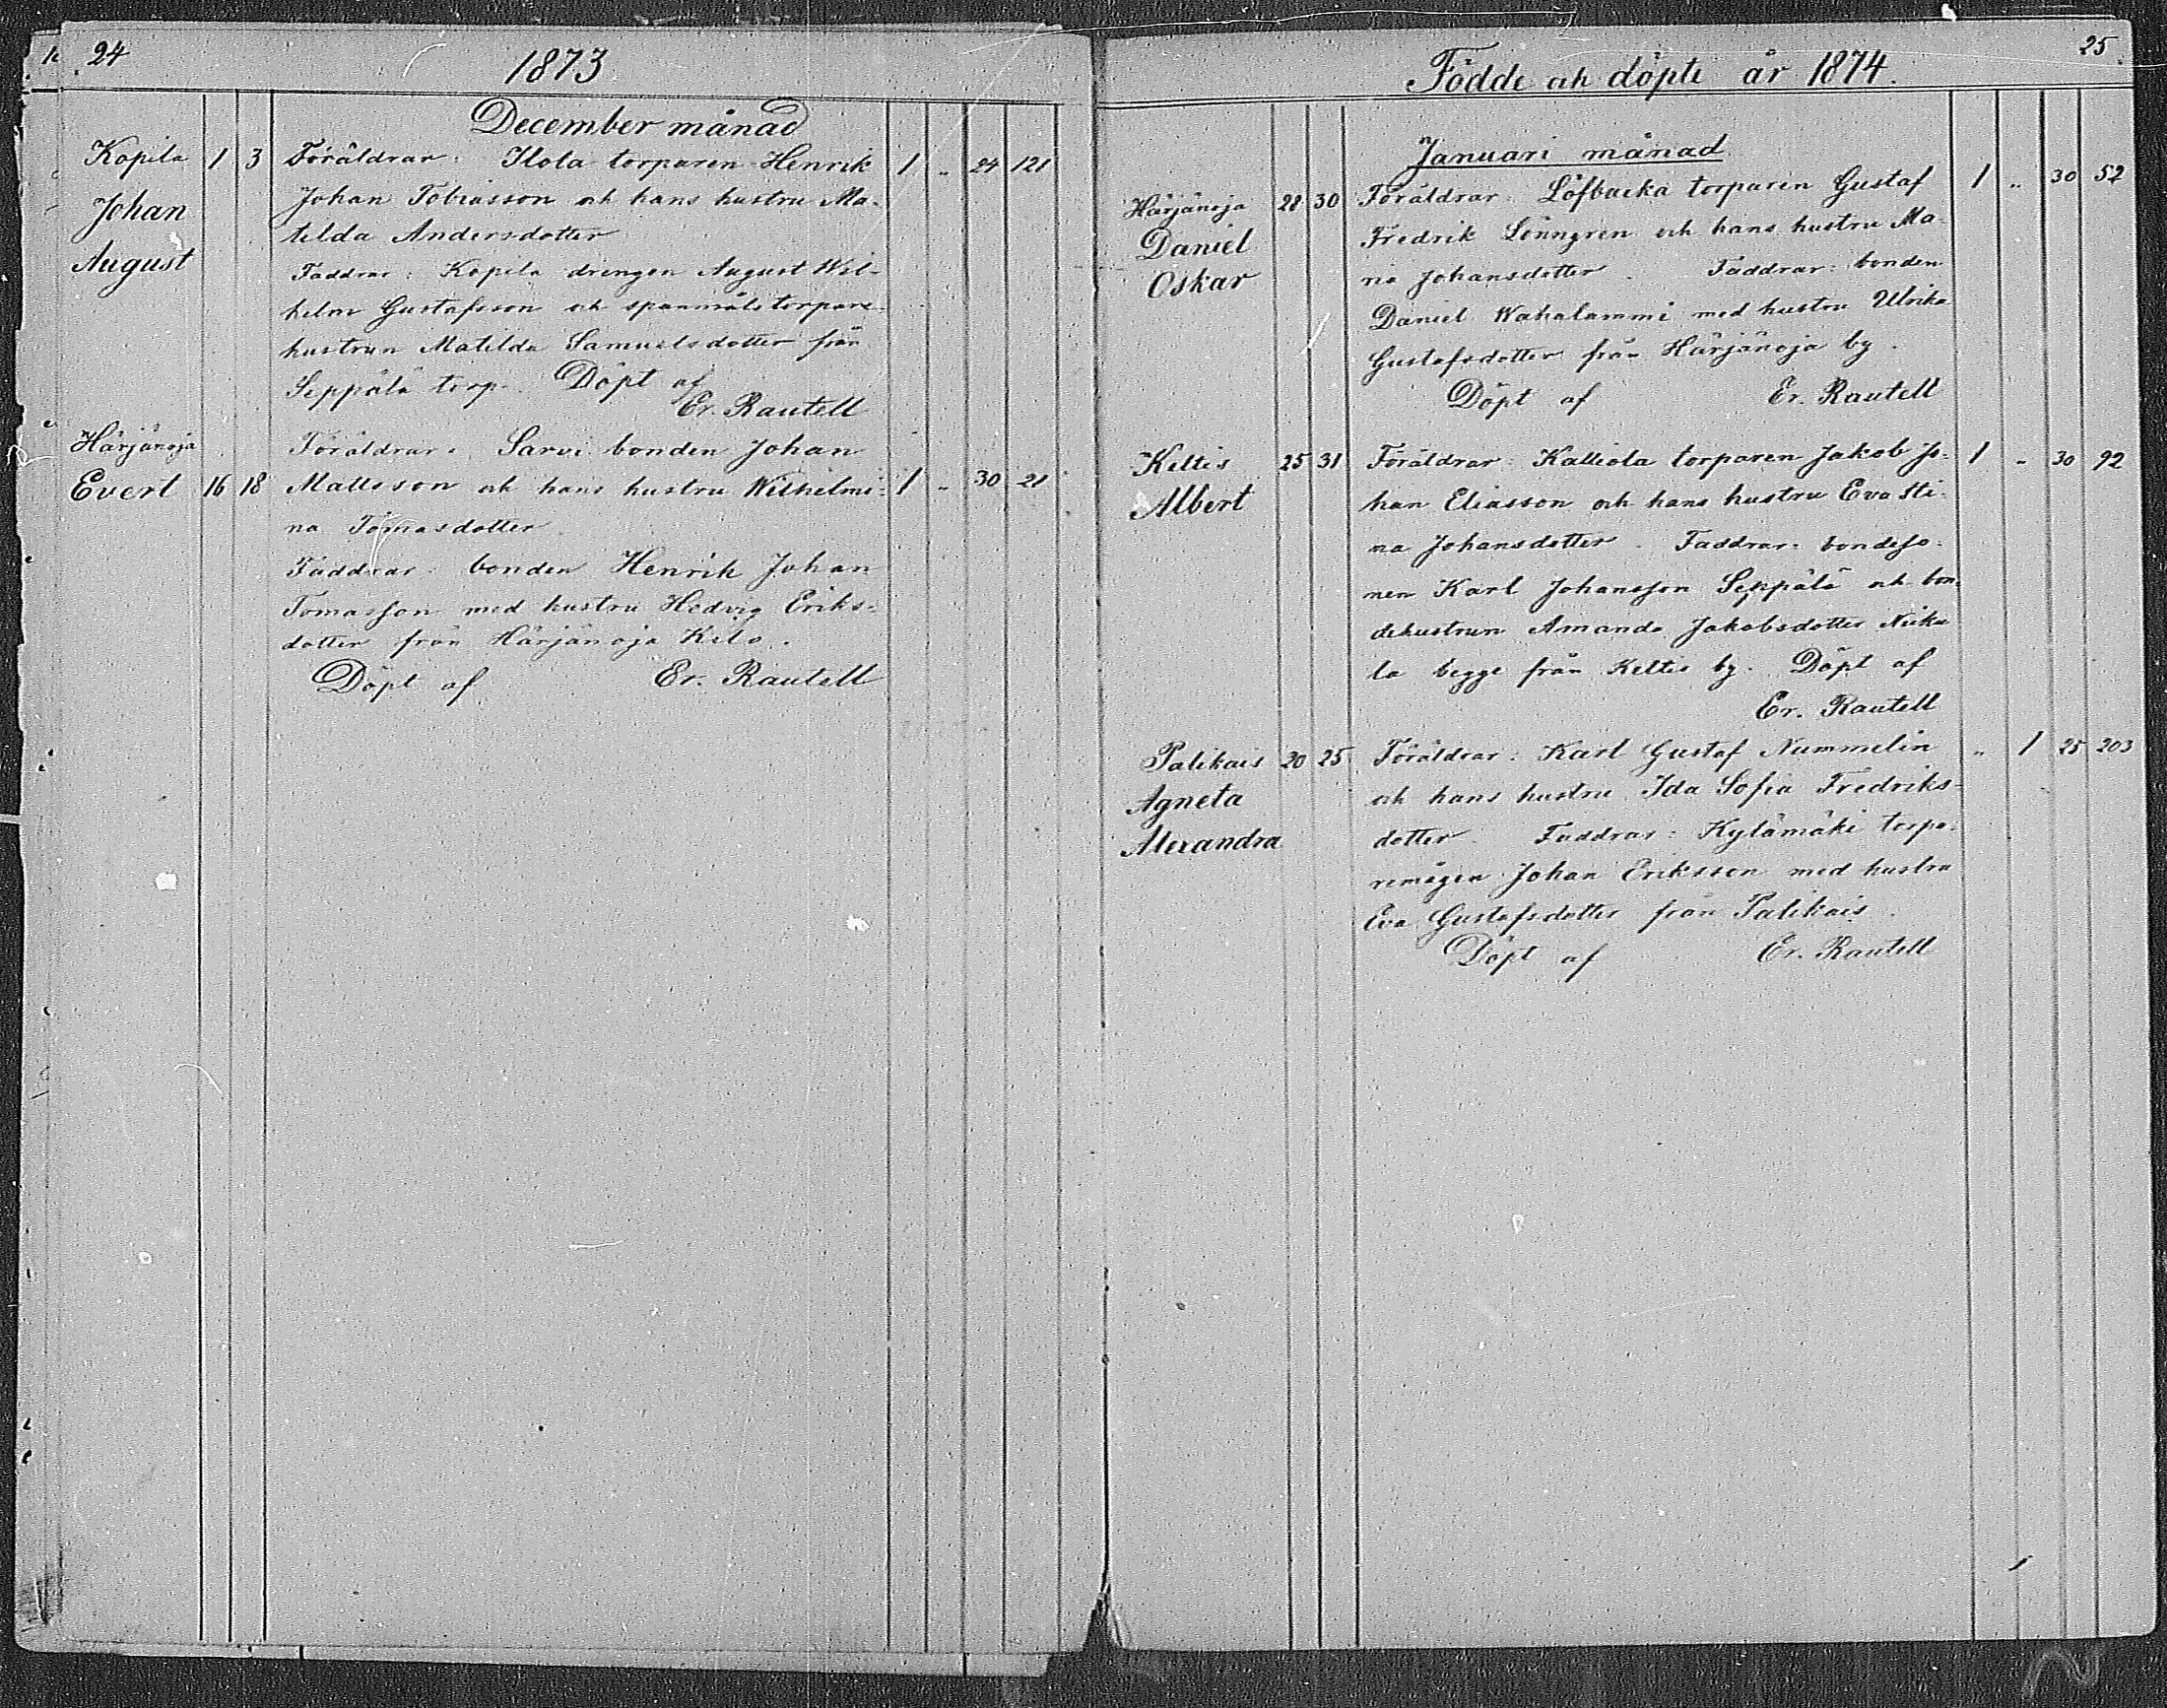 24
1873
December månad
Kopila 1 3 Föräldrar: Ilola torparen Henrik 1 „ 24 121
Johan Johan Tobiasson och hans hustru Ma-
August tilda Andersdotter
Faddrar: Kopila drengen August Wil-
helm Gustafsson och spannmålstorpare
hustrun Matilda Samuelsdotter från
Seppälä torp. Döpt af
Er. Rautell
Härjänoja Föräldrar: Sarvi bonden Johan
Evert 16 18 Mattsson och hans hustru Wilhelmi- 1 „ 30 21
na Tomasdotter
Faddrar: bonden Henrik Johan
Tomasson med hustru Hedvig Eriks-
dotter från Härjänoja Kilo.
Döpt af Er. Rautell
25
Födde och döpte år 1874.
Januari månad
Härjänoja 28 30 Föräldrar: Löfbacka torparen Gustaf 1 „ 30 52
Daniel Fredrik Lönngren och hans hustru Ma-
Oskar ria Johansdotter. Faddrar: bonden
Daniel Wahalammi med hustru Ulrika
Gustafsdotter från Härjänoja by.
Döpt af Er. Rautell
Keltis 25 31 Föräldrar: Kalliola torparen Jakob Jo- 1 „ 30 92
Albert han Eliasson och hans hustru Eva Sti-
na Johansdotter. Faddrar: bondeso-
nen Karl Johansson Seppälä och bon-
dehustrun Amanda Jakobsdotter
la begge från Keltis by. Döpt af
Er. Rautell
Palikais 20 25 Föräldrar: Karl Gustaf Nummelin „ 1 25 203
Agneta och hans hustru Ida Sofia Fredriks-
Alexandra dotter. Faddrar: Kylämäki torpa-
remågen Johan Eriksson med hustru
Eva Gustafsdotter från Palikais.
Döpt af Er. Rautell